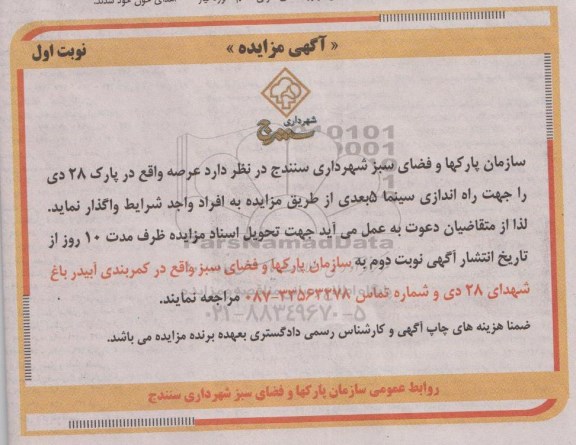 « آگهی مزایده »
نوبت اول
شهرداری
سنندج
سازمان پارکها و فضای سبز شهرداری سنندج در نظر دارد عرصه واقع در پارک ۲۸ دی
را جهت راه اندازی سینما ۵بعدی از طریق مزایده به افراد واجد شرایط واگذار نماید.
لذا از متقاضیان دعوت به عمل می آید جهت تحویل اسناد مزایده ظرف مدت ۱۰ روز از
تاریخ انتشار آگهی نوبت دوم به سازمان پارکها و فضای سبز واقع در کمربندی آبیدر باغ
شهدای ۲۸ دی و شماره تماس ۳۳۵۶۳۲۷۸-۰۸۷ مراجعه نمایند.
ضمنا هزینه های چاپ آگهی و کارشناس رسمی دادگستری بعهده برنده مزایده می باشد.
روابط عمومی سازمان پارکها و فضای سبز شهرداری سنندج
ParsNamadData
۰۲۱-۸۸۳۴۹۶۷۰-۵